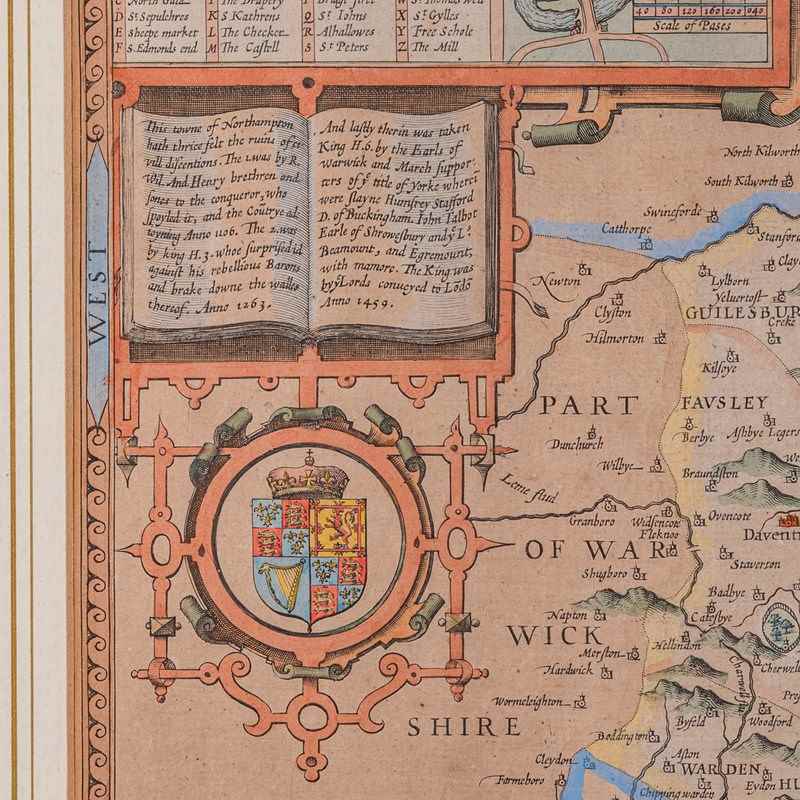 C North Guild
The Drapery
Bridge stret
W St Thomas well
D St Sepulchres
K S Kathrens
Q St Iohns
X St Gylles
E Sheepe market
L The Checker
R Alhallowes
Y Free Schole
F S. Edmonds end
M The Castell
S St Peters
Z The Mill
40 80 120 160 200 240
Scale of Pases
This towne of Northampton
hath thrice felt the ruins of ci
vill discentions. The 1. was by R.
Wil. And Henry brethren and
sones to the conqueror, who
spoyled it, and the Coutrye ad
ioyning Anno 1106. The 2. was
by king H.3. whoe surprised it
against his rebellious Barons
and brake downe the walles
thereof. Anno 1263.
And lastly therin was taken
King H.6. by the Earls of
Warwick and March suppor-
ters of ye title of Yorke wherei
were slayne Humfrey Stafford
D. of Buckingham. Iohn Talbot
Earle of Shrowesbury and ye Ls
Beamount, and Egremount,
with mamore. The King was
by ye Lords conueyed to Lodo
Anno 1459.
WEST
North Kilworth
South Kilworth
Swineforde
Catthorpe
Stanfor
Newton
Lylborn
Clay
Yelvertoft
Clyston
GUILESBUR
Hilmorton
Creke
Kilsbye
PART
FAVSLEY
Berbye
Ashbye Legers
Dunchurch
Wilbye
Braundston
We
Leme flud
Granboro
Widsencote
Ovencote
Fleknoo
Davent
OF WAR
Staverton
Shugboro
Badbye
Napton
Catesbye
WICK
Hellindon
Merston
Hardwick
Charwell flu
Cherwel
Wormeleighton
Pre
Byfeld
Woodford
SHIRE
Boddington
Cleydon
Aston
WARDEN
Farmeboro
Eydon
HU
Chipping warden